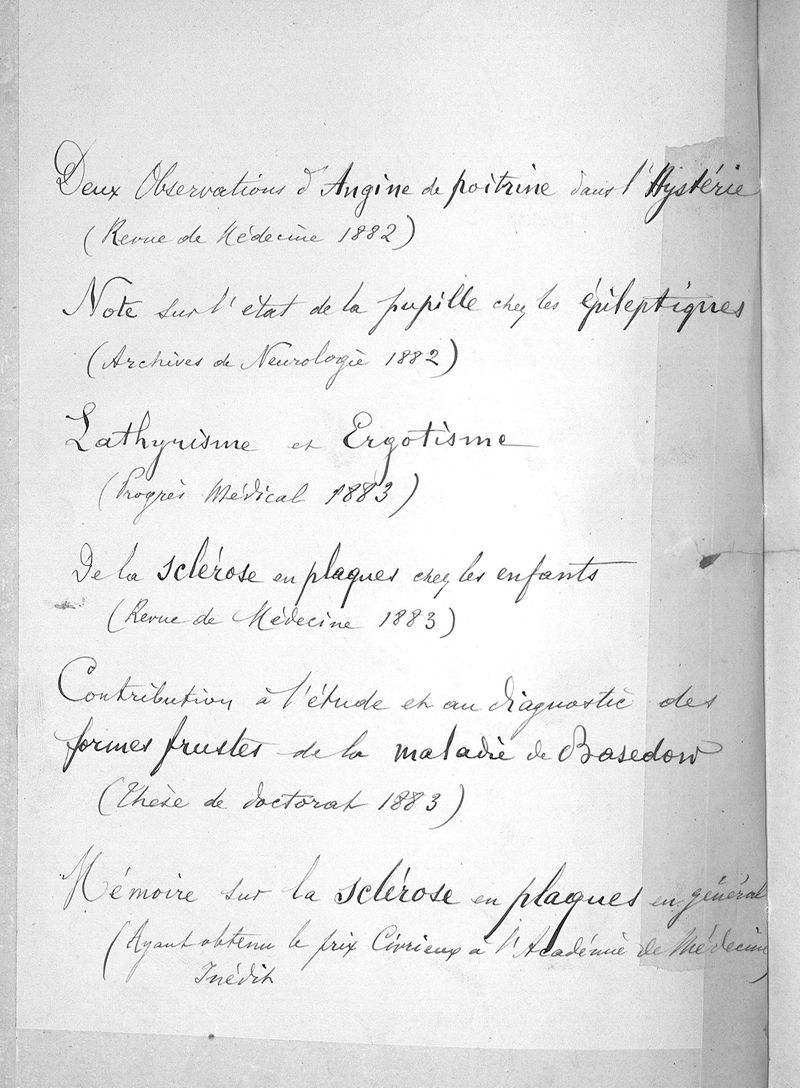 Deux Observations d'Angine de poitrine dans l'Hystérie
(Revue de Médecine 1882)
Note sur l'état de la pupille chez les épileptiques
(Archives de Neurologie 1882)
Lathyrisme et Ergotisme
(Progrès Médical 1883)
De la sclérose en plaques chez les enfants
(Revue de Médecine 1883)
Contribution à l'étude et au diagnostic des
formes frustes de la maladie de Basedow
(Thèse de doctorat 1883)
Mémoire sur la sclérose en plaques en général
(Ayant obtenu le prix Civrieux à l'Académie de Médecine)
Inédit